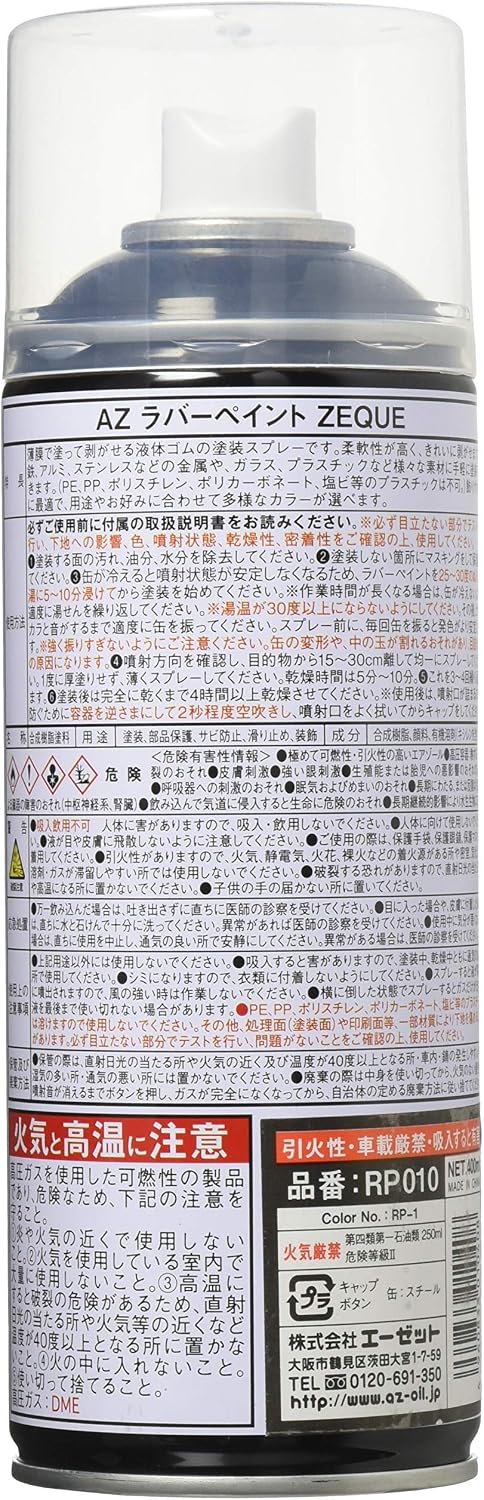 AZ ラバーペイント ZEQUE
特長
薄膜で塗って剥がせる液体ゴムの塗装スプレーです。柔軟性が高く、きれいに剥がせます
鉄、アルミ、ステンレスなどの金属や、ガラス、プラスチックなど様々な素材に手軽に塗装
きます。(PE、PP、ポリスチレン、ポリカーボネート、塩ビ等のプラスチックは不可。)
に最適で、用途やお好みに合わせて多様なカラーが選べます。
使用方法
必ずご使用前に付属の取扱説明書をお読みください。※必ず目立たない部分でテ
行い、下地への影響、色、噴射状態、乾燥性、密着性をご確認の上、使用してください。
❶塗装する面の汚れ、油分、水分を除去してください。❷塗装しない箇所にマスキングをして
てください。❸缶が冷えると噴射状態が安定しなくなるため、ラバーペイントを25~30度の
湯に5~10分浸けてから塗装を始めてください。※作業時間が長くなる場合は、缶が冷えない
適度に湯せんを繰り返してください。※湯温が30度以上にならないようにしてください。その後、
カラと音がするまで適度に缶を振ってください。スプレー前に、毎回缶を振ると発色が安定
※強く振りすぎないようにご注意ください。缶の変形や、中の玉が割れるおそれがあり、目
の原因になります。❹噴射方向を確認し、目的物から15~30cm離して均一にスプレーして
い。1度に厚塗りせず、薄くスプレーしてください。乾燥時間は5分~10分。❺これを3~4回
す。❻塗装後は完全に乾くまで4時間以上乾燥させてください。※使用後は、噴射口が詰ま
防ぐために容器を逆さまにして2秒程度空吹きし、噴射口をよく拭いてからキャップをしてくだ
名称 合成樹脂塗料 用途 塗装、部品保護、サビ防止、滑り止め、装飾 成分 合成樹脂、顔料、有機溶剤
危険
<危険有害性情報> ●極めて可燃性・引火性の高いエアゾール ●高圧容器
裂のおそれ ●皮膚刺激 ●強い眼刺激 ●生殖能または胎児への悪影響のおそれ
●呼吸器への刺激のおそれ ●眠気およびめまいのおそれ ●長期にわたる
臓器の障害のおそれ(中枢神経系、腎臓) ●飲み込んで気道に侵入すると生命に危険のおそれ
警告
●吸入飲用不可 人体に害がありますので、吸入・飲用しないでください。●人体に向けて使用しない
い。●液が目や皮膚に飛散しないように注意してください。●ご使用の際は、保護手袋、保護眼鏡
着用してください。●引火性がありますので、火気、静電気、火花、裸火などの着火源がある所
溶剤・ガスが滞留しやすい所では使用しないでください。●破裂する恐れがありますので、直射日光の当た
や高温になる所に置かないでください。●子供の手の届かない所に置いてください。
応急処置
●万一飲み込んだ場合は、吐き出さずに直ちに医師の診察を受けてください。●目に入った場合や、皮膚に付
は、直ちに水と石けんで十分に洗ってください。異常があれば医師の診察を受けてください。
場合は、直ちに使用を中止し、通気の良い所で安静にしてください。異常がある場合は、医師の診察を受けてください。
使用上の
注意事項
●上記用途以外には、使用しないでください。●吸入すると害がありますので、塗装中、乾燥中ともに
所で使用してください。●シミになりますので、衣類に付着しないようにしてください。●スプレーすると
に噴出されますので、風の強い時は作業しないでください。●横に倒した状態でスプレーすると
液を最後まで使い切れない場合があります。●PE、PP、ポリスチレン、ポリカーボネート、塩ビ等
は溶けますので使用しないでください。その他、処理面(塗装面)や印刷面等、一部材質により下地を
あります。必ず目立たない部分でテストを行い、問題がないことをご確認の上、使用してください。
保管及び
廃棄方法
●保管の際は、直射日光の当たる所や火気の近く及び温度が40度以上となる所・車内・錆の発生しやすい
湿気の多い所・通気の悪い所には置かないでください。●廃棄の際は中身を使い切ってから、火気のない
噴射音が消えるまでボタンを押し、ガスが完全になくなってから、自治体の定める廃棄方法に従い捨てて
火気と高温に注意
高圧ガスを使用した可燃性の製品
であり、危険なため、下記の注意を
守ること。
①炎や火気の近くで使用しない
こと。②火気を使用している室内で
大量に使用しないこと。③高温に
すると破裂の危険があるため、直射
日光の当たる所や火気等の近くなど
温度が40度以上となる所に置かな
いこと。④火の中に入れないこと。
⑤使い切って捨てること。
高圧ガス:DME
引火性・車載厳禁・吸入すると有害
品番:RP010
NET.400ml
MADE IN CHINA
Color No. : RP-1
火気厳禁
第四類第一石油類 250ml
危険等級Ⅱ
プラ
キャップ
ボタン
缶:スチール
株式会社エーゼット
大阪市鶴見区茨田大宮1-7-59
TEL 0120-691-350
http://www.az-oil.jp